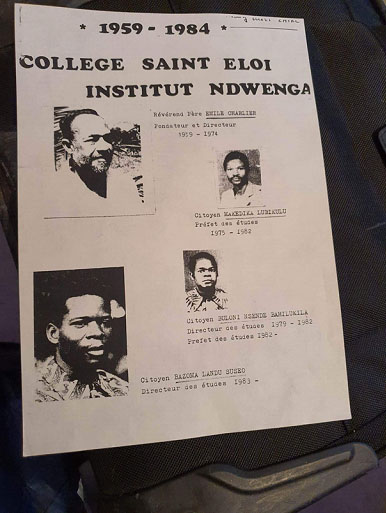 * 1959 - 1984 *
COLLEGE SAINT ELOI
INSTITUT NDWENGA
Révérend Père EMILE CHARLIER
Fondateur et Directeur
1959 - 1974
Citoyen MAKEDIKA LUBIKULU
Préfet des études
1975 - 1982
Citoyen BULONI NSENDE BAMILUKILA
Directeur des études 1979 - 1982
Prefet des études 1982-
Citoyen BAZOMA LANDU SUSEO
Directeur des études 1983 -